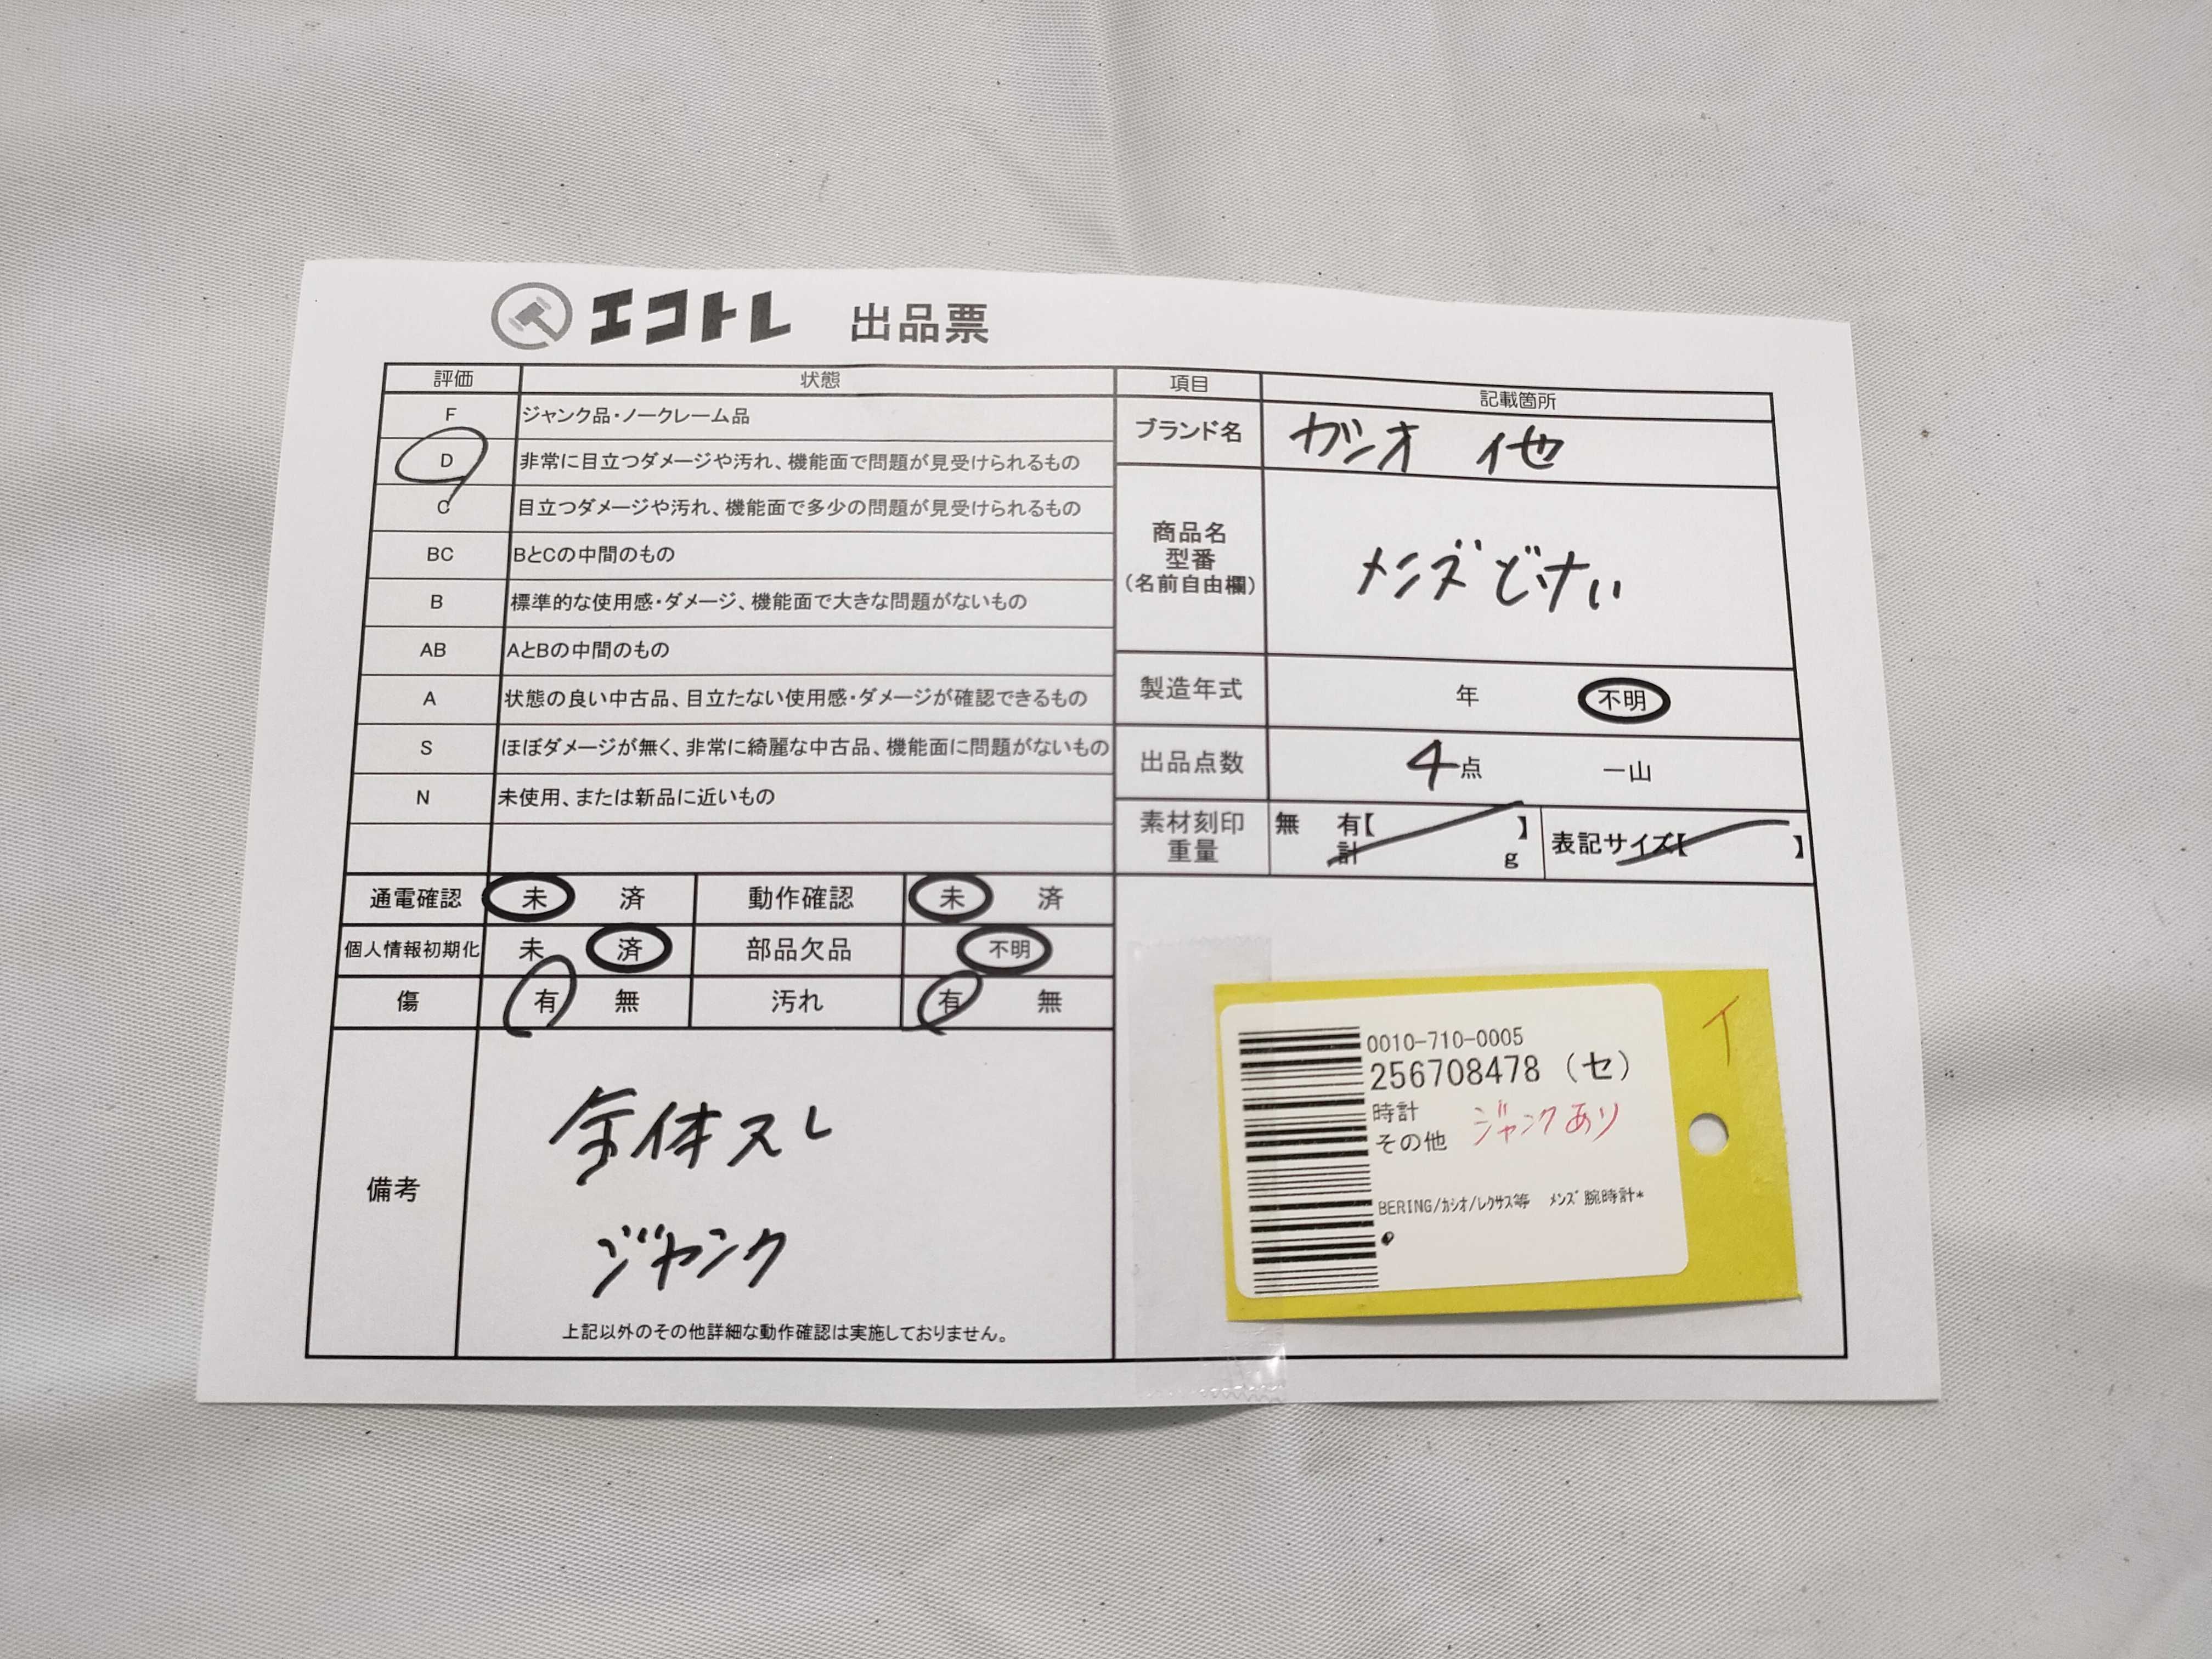 エコトレ 出品票
評価 状態
F ジャンク品・ノークレーム品
D 非常に目立つダメージや汚れ、機能面で問題が見受けられるもの
C 目立つダメージや汚れ、機能面で多少の問題が見受けられるもの
BC BとCの中間のもの
B 標準的な使用感・ダメージ、機能面で大きな問題がないもの
AB AとBの中間のもの
A 状態の良い中古品、目立たない使用感・ダメージが確認できるもの
S ほぼダメージが無く、非常に綺麗な中古品、機能面に問題がないもの
N 未使用、または新品に近いもの
項目 記載箇所
ブランド名 カシオ 他
商品名
型番
（名前自由欄）
メンズどけい
製造年式 年 不明
出品点数 4点 一山
素材刻印 無 有【 】
重量 計 g
表記サイズ【 】
通電確認 未 済 動作確認 未 済
個人情報初期化 未 済 部品欠品 不明
傷 有 無 汚れ 有 無
備考
全体スレ
ジャンク
上記以外のその他詳細な動作確認は実施しておりません。
イ
0010-710-0005
256708478 (セ)
時計
その他 ジャンクあり
BERING/ｶｼｵ/ﾚｸｻｽ等 ﾒﾝｽﾞ腕時計*